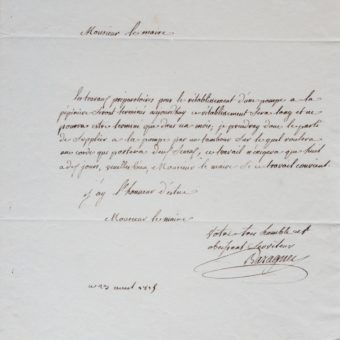 Monsieur le maire
les travaux preparatoires pour le rétablissement d'une pompe a la
pépinière seront terminés aujourdhuy ce rétablissement sera long et ne
pourra estre terminé que dans un mois, je prendrai donc le parti
de supplier a la pompe par un tambour sur le quel roulera
une corde qui portera des ce travail n'exigera que huit
a dix jours, veuillez Monsieur le maire de ce travail couvrant
J'ay l'honneur d'estre
Monsieur le maire
Votre tres humble et
obeissant serviteur
Baraguei
ce 23 aout